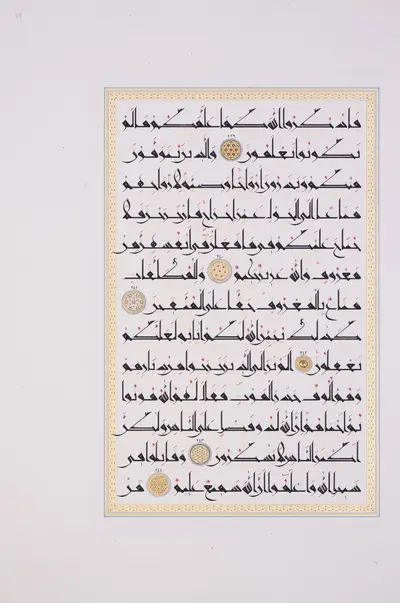 فاذكروا الله كما علمكم ما لم
تكونوا تعلمون ٢٣٩ والذين يتوفون
منكم ويذرون ازواجا وصية لازواجهم
متاعا الى الحول غير اخراج فان خرجن فلا
جناح عليكم في ما فعلن في انفسهن من
معروف والله عزيز حكيم ٢٤٠ وللمطلقات
متاع بالمعروف حقا على المتقين ٢٤١
كذلك يبين الله لكم اياته لعلكم
تعقلون ٢٤٢ الم تر الى الذين خرجوا من ديارهم
وهم الوف حذر الموت فقال لهم الله موتوا
ثم احياهم ان الله لذو فضل على الناس ولكن
اكثر الناس لا يشكرون ٢٤٣ وقاتلوا في
سبيل الله واعلموا ان الله سميع عليم ٢٤٤ من